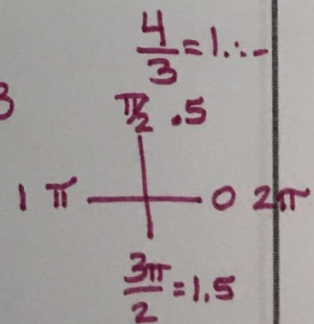 4/3 = 1.∴-
3
π/2 .5
1 π 0 2π
3π/2 = 1.5